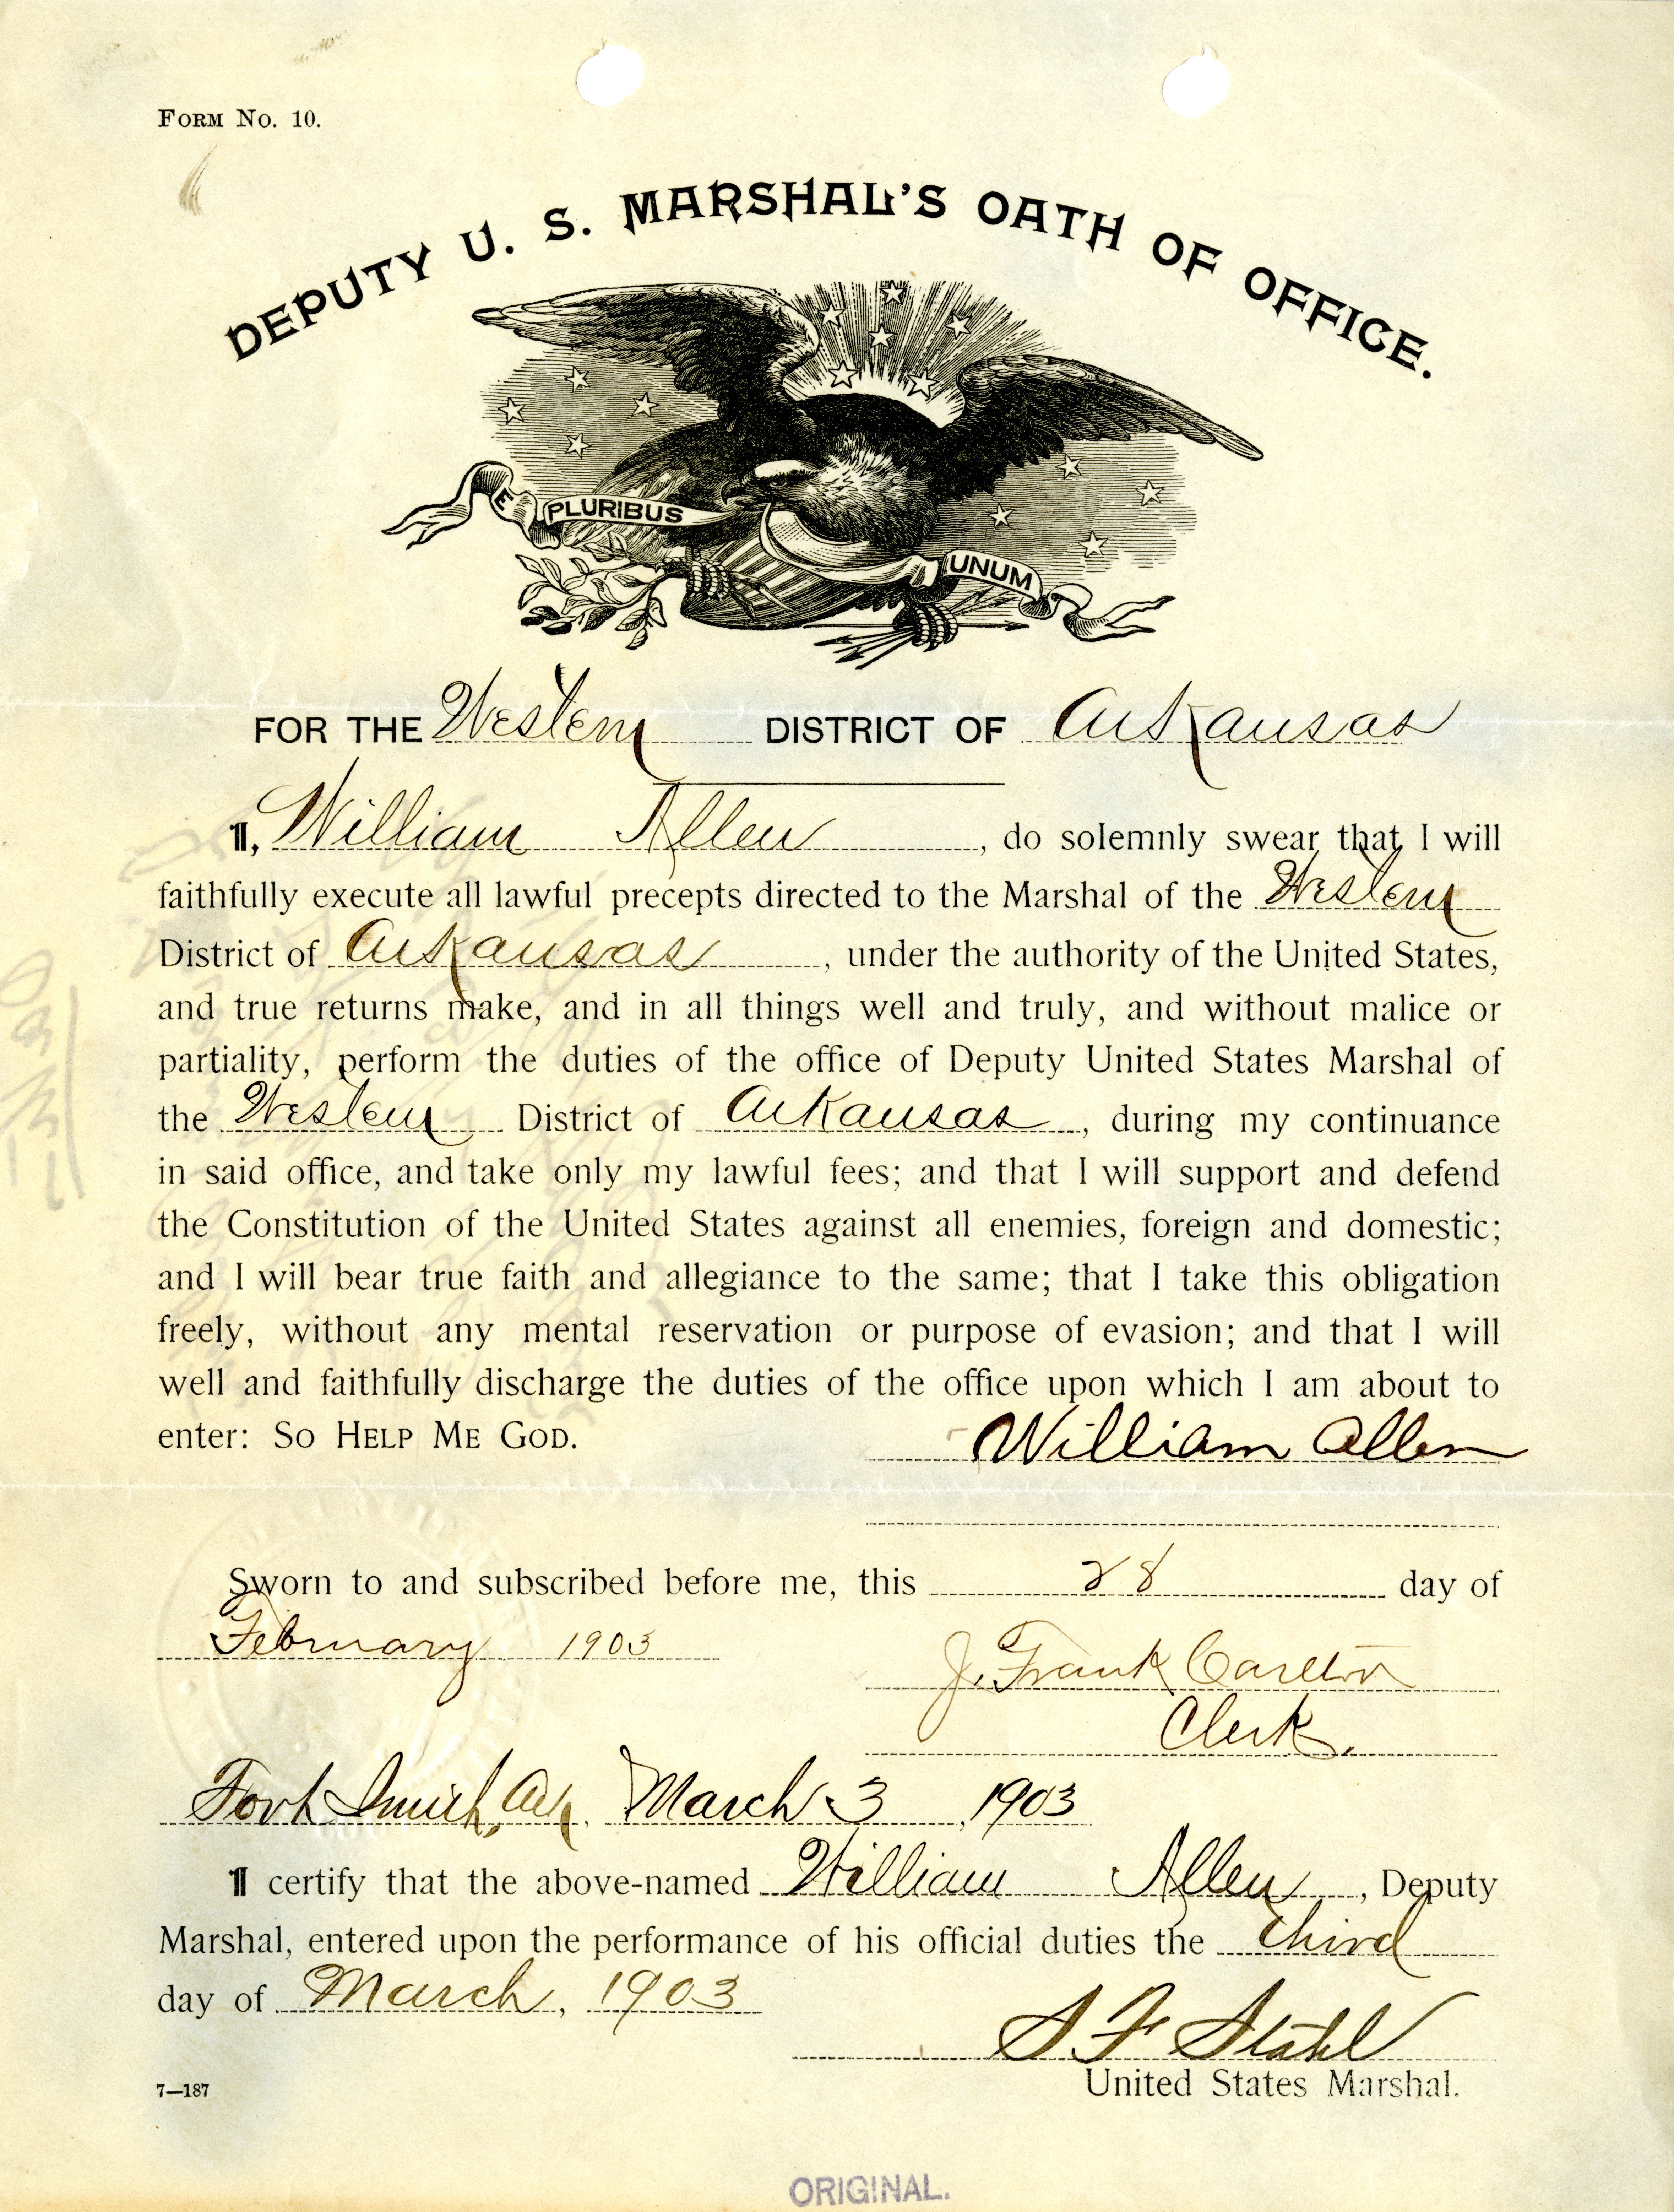 FORM NO. 10.
DEPUTY U. S. MARSHAL'S OATH OF OFFICE.
E PLURIBUS UNUM
FOR THE Western DISTRICT OF Arkansas
I, William Allen, do solemnly swear that I will
faithfully execute all lawful precepts directed to the Marshal of the Western
District of Arkansas, under the authority of the United States,
and true returns make, and in all things well and truly, and without malice or
partiality, perform the duties of the office of Deputy United States Marshal of
the Western District of Arkansas, during my continuance
in said office, and take only my lawful fees; and that I will support and defend
the Constitution of the United States against all enemies, foreign and domestic;
and I will bear true faith and allegiance to the same; that I take this obligation
freely, without any mental reservation or purpose of evasion; and that I will
well and faithfully discharge the duties of the office upon which I am about to
enter: SO HELP ME GOD. William Allen
Sworn to and subscribed before me, this 28 day of
February 1903
J. Frank Carlton
Clerk.
Fort Smith, Ark, March 3, 1903
I certify that the above-named William Allen, Deputy
Marshal, entered upon the performance of his official duties the third
day of March, 1903
S F Stahl
United States Marshal.
7—187
ORIGINAL.